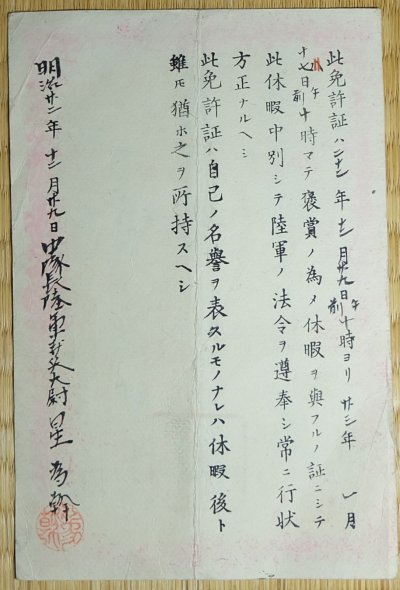 此免許証ハ二十一年十二月廿九日午前十時ヨリ廿二年一月
十七日午前十時マテ褒賞ノ為メ休暇ヲ與フルノ証ニシテ
此休暇中別シテ陸軍ノ法令ヲ遵奉シ常ニ行状
方正ナルヘシ
此免許証ハ自己ノ名譽ヲ表スルモノナレハ休暇後ト
雖モ猶ホ之ヲ所持スヘシ
明治廿一年十二月廿九日中隊長陸軍歩兵大尉星為幹